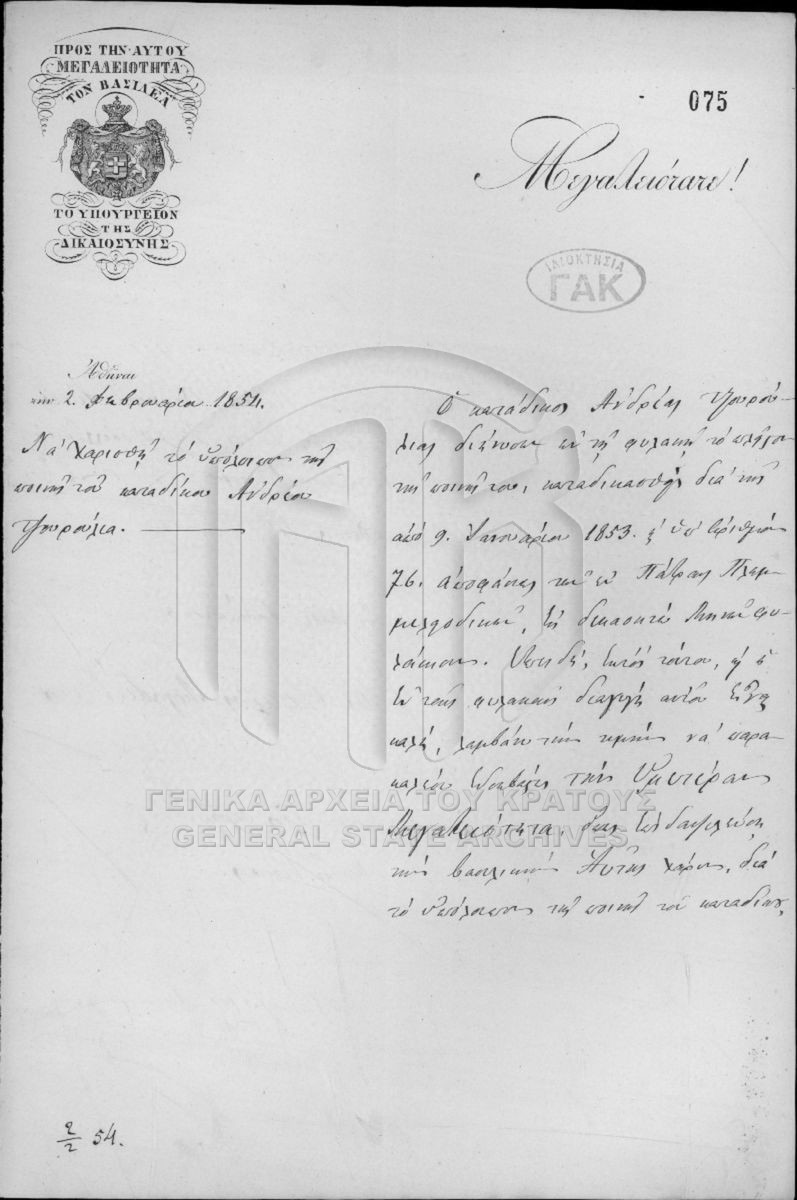 ΠΡΟΣ ΤΗΝ ΑΥΤΟΥ
ΜΕΓΑΛΕΙΟΤΗΤΑ
ΤΟΝ ΒΑΣΙΛΕΑ
ΤΟ ΥΠΟΥΡΓΕΙΟΝ
ΤΗΣ
ΔΙΚΑΙΟΣΥΝΗΣ
075
Μεγαλειότατε!
ΙΔΙΟΚΤΗΣΙΑ
ΓΑΚ
Ἀθῆναι
την 2. Φεβρουαρίου 1854.
Νὰ χαρισθῇ τὸ ὑπόλοιπον τῆς
ποινῆς τοῦ καταδίκου Ἀνδρέου
Τζουρούλια.
Ὁ κατάδικος Ἀνδρέας Τζουρού-
λιας διήνυσεν ἐν τῇ φυλακῇ τὸ πλεῖστον
τῆς ποινῆς του, καταδικασθεὶς διὰ τῆς
ἀπὸ 9. Ἰανουαρίου 1853. ὑπ' ἀριθμὸν
76. ἀποφάσεως τῶν ἐν Πάτραις Πλημ-
μελειοδικῶν, εἰς φυ-
λάκισιν. Ἐπειδὴ, ἐκτὸς τούτου, ἡ
ἐν ταῖς φυλακαῖς διαγωγή αὐτοῦ εἶναι
καλή, λαμβάνω τὴν τιμὴν νὰ παρα-
καλέσω εὐσεβῶς τὴν Ὑμετέραν
Μεγαλειότητα, ὅπως εὐδοκήσῃ
τὴν βασιλικὴν Αὐτῆς χάριν, διὰ
τὸ ὑπόλοιπον τῆς ποινῆς τοῦ καταδίκου,
ΓΕΝΙΚΑ ΑΡΧΕΙΑ ΤΟΥ ΚΡΑΤΟΥΣ
GENERAL STATE ARCHIVES
2/2 54.